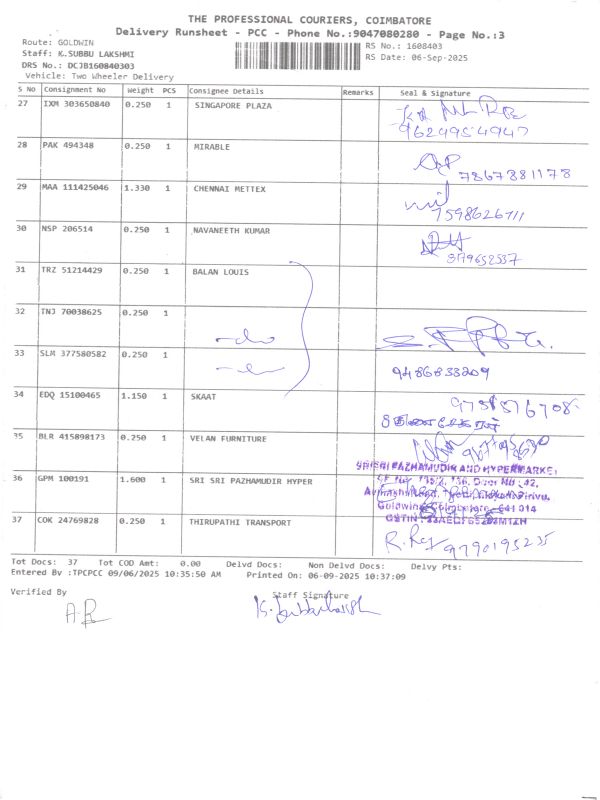 THE PROFESSIONAL COURIERS, COIMBATORE
Delivery Runsheet - PCC - Phone No.:9047080280 - Page No.:3
Route: GOLDWIN
RS No.: 1608403
Staff: K.SUBBU LAKSHMI
RS Date: 06-Sep-2025
DRS No.: DCJB160840303
Vehicle: Two Wheeler Delivery
S No Consignment No Weight PCS Consignee Details Remarks Seal & Signature
27 IXM 303650840 0.250 1 SINGAPORE PLAZA
9629954947
28 PAK 494348 0.250 1 MIRABLE
7867881178
29 MAA 111425046 1.330 1 CHENNAI METTEX
7598626711
30 NSP 206514 0.250 1 NAVANEETH KUMAR
31 TRZ 51214429 0.250 1 BALAN LOUIS
32 TNJ 70038625 0.250 1
-do
33 SLM 377580582 0.250 1
9486833209
34 EDQ 15100465 1.150 1 SKAAT
35 BLR 415898173 0.250 1 VELAN FURNITURE
SRI SRI PAZHAMUDIR AND HYPERMARKET
36 GPM 100191 1.600 1 SRI SRI PAZHAMUDIR HYPER
Goldwins, Coimbatore - 641 014
37 COK 24769828 0.250 1 THIRUPATHI TRANSPORT
9790195235
Tot Docs: 37 Tot COD Amt: 0.00 Delvd Docs: Non Delvd Docs: Delvy Pts:
Entered By :TPCPCC 09/06/2025 10:35:50 AM Printed On: 06-09-2025 10:37:09
Verified By
Staff Signature
A.R